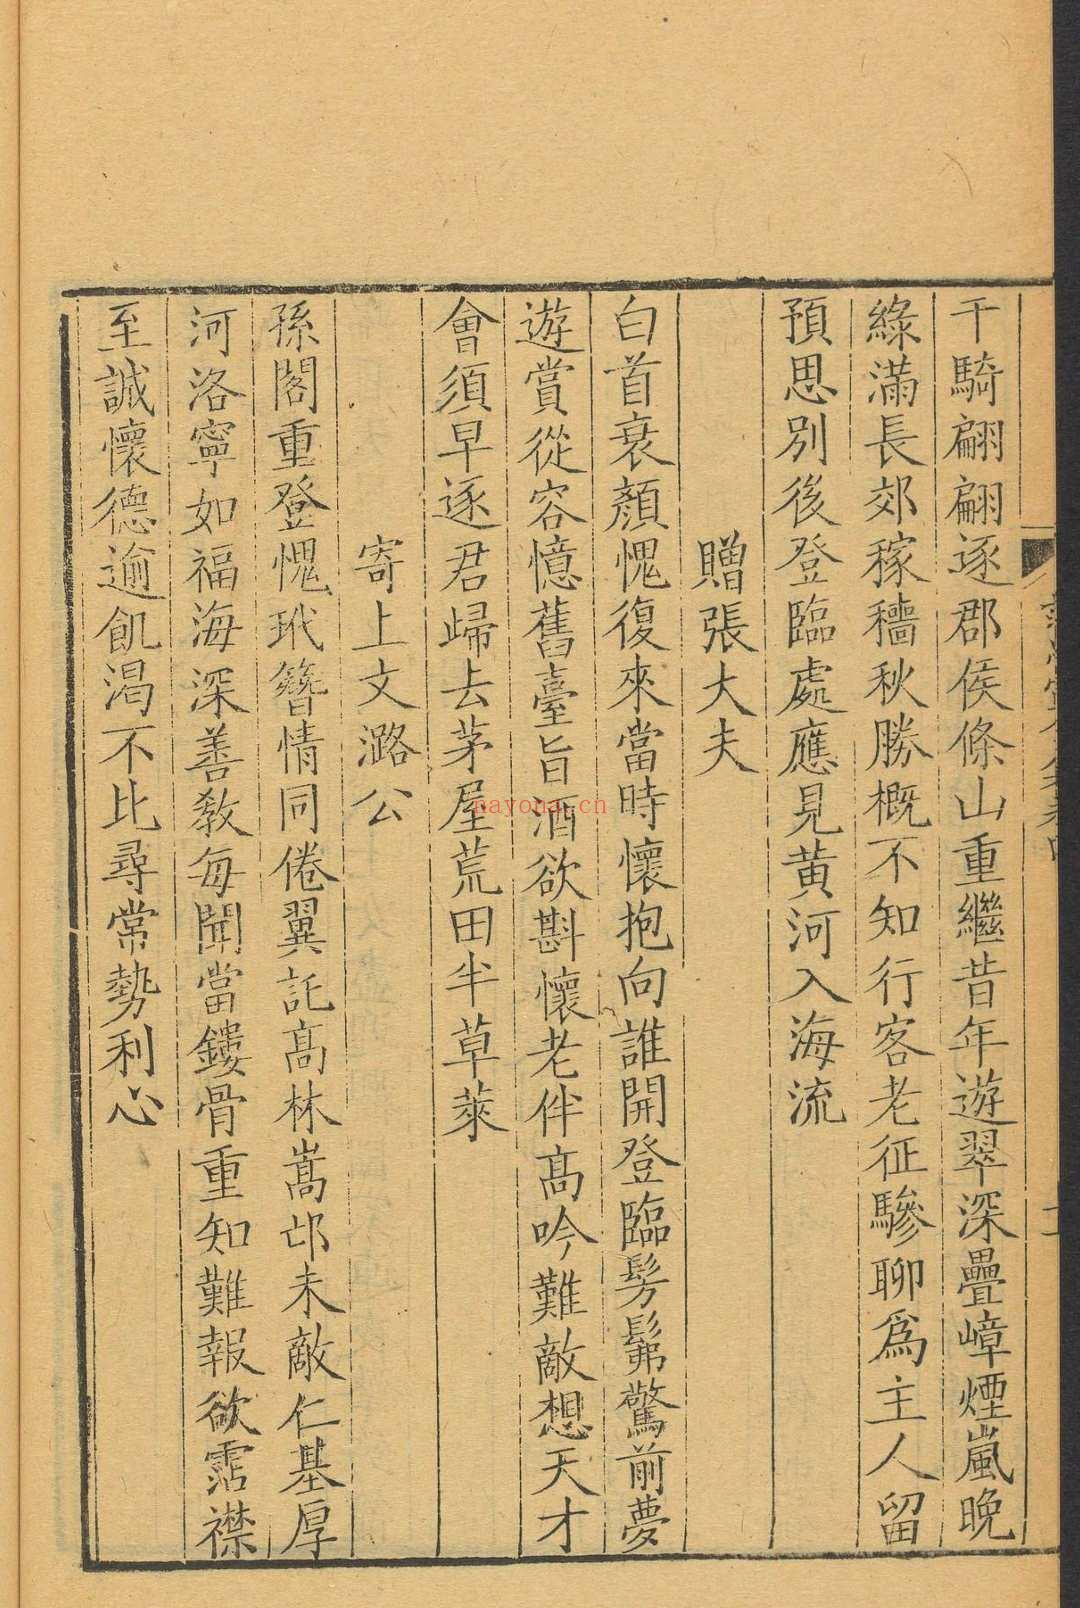 千騎翩翩逐郡侯條山重繼昔年遊翠深疊嶂煙嵐晚
綠滿長郊稼穡秋勝概不知行客老征驂聊爲主人留
預思別後登臨處應見黃河入海流
贈張大夫
白首衰顏愧復來當時懷抱向誰開登臨髣髴驚前夢
遊賞從容憶舊臺旨酒欲斟懷老伴高吟難敵想天才
會須早逐君歸去茅屋荒田半草萊
寄上文潞公
孫閣重登愧玳簪情同倦翼託高林嵩邙未敵仁基厚
河洛寧如福海深善教每聞當鏤骨重知難報欲霑襟
至誠懷德逾飢渴不比尋常勢利心
nayona.cn